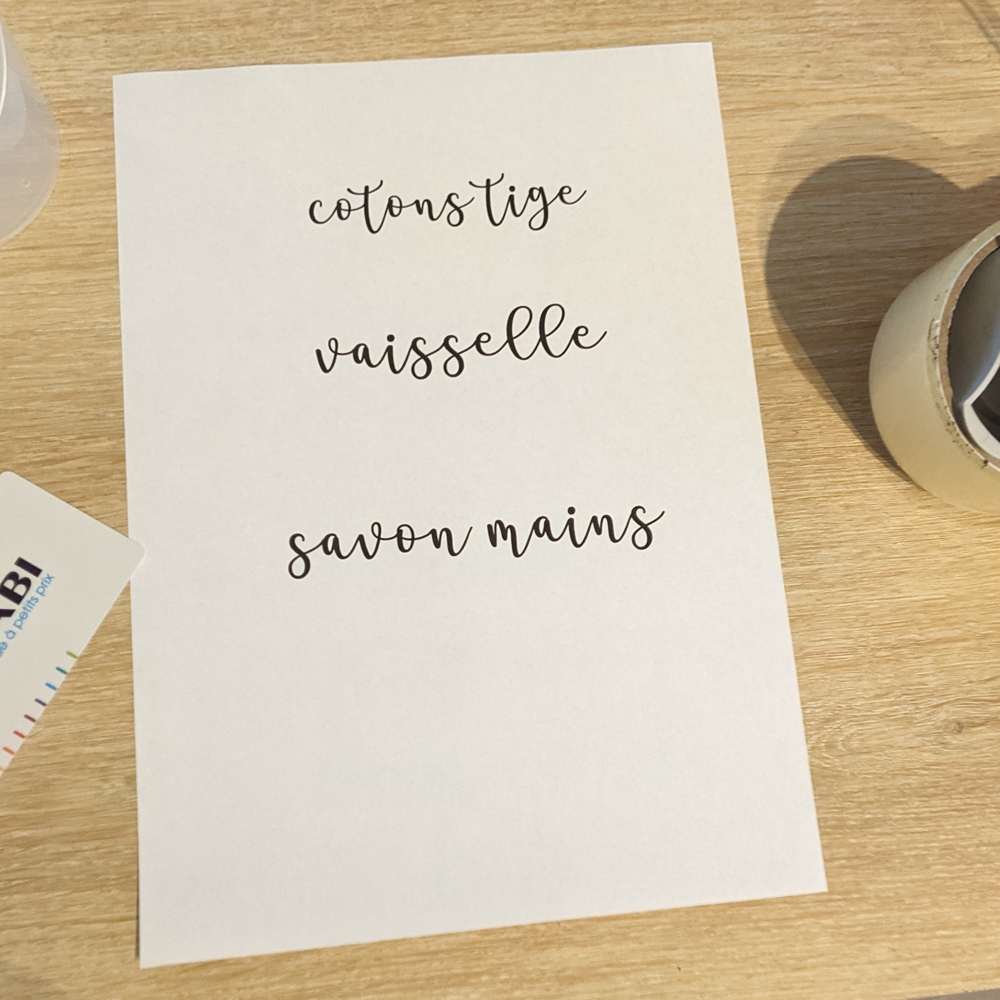 cotons tige
vaisselle
savon mains
à petits prix